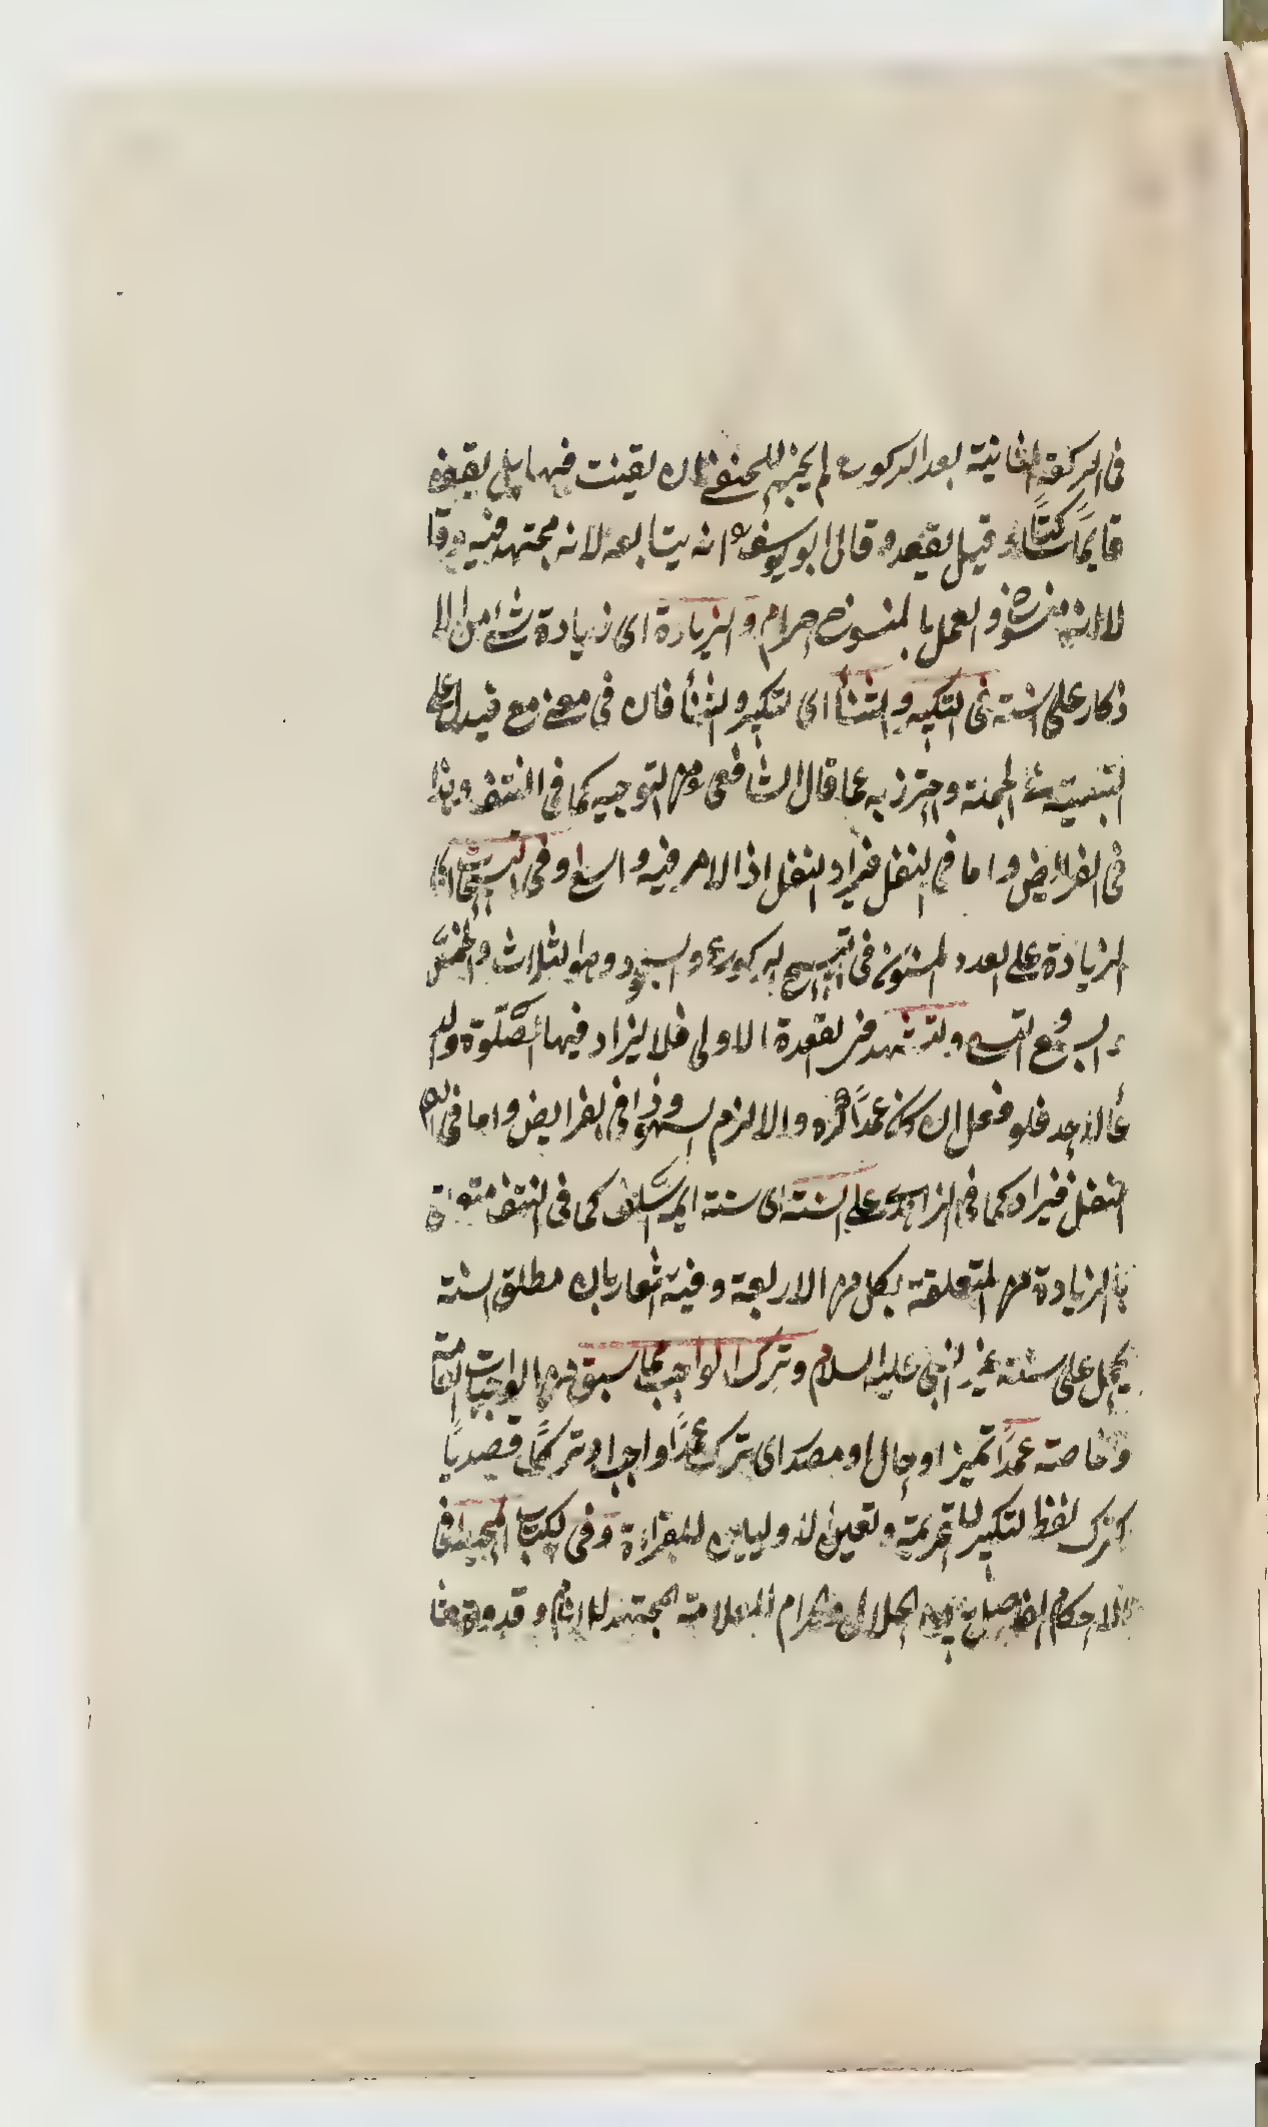 فى الركعة الثانية بعد الركوع لم يجز للحنفى ان يقنت فيها بل يقف
قايماً ساكتاً وقيل يقعد وقال ابو يوسف انه يتابعه لانه مجتهد فيه وقا
لا لانه منسوخ والعمل بالمنسوخ حرام والزيادة اى زيادة شئ من الا
ذكار على السنة فى التكبير والثنأ اى التكبير والثنأ فان فى بمعنى مع فيدل على
التسمية الجملة واحترز به عما قال الشافعى من التوجيه كما فى النتف وهذا
فى الفرايض واما فى النفل فيزاد النفل اذ الامر فيه واسع وفى التسبيح اى
الزيادة على العدد المسنون فى التسبيح الركوع والسجود وهو الثلاث والخمس
والسبع والتسع والتشهد فى القعدة الاولى فلا يزاد فيها الصلوة والد
عأ الواحد فلو فعل ان كان عمداً كره والا لزم السهو وذا فى الفرايض واما فى
النفل فيزاد كما فى الزاهدى على السنة اى سنة ايمة السلف كما فى النتف متعلقة
بالزيادة المتعلقة بكل من الاربعة وفيه اشعار بان مطلق السنة
يحمل على سنة غير النبى عليه السلام وترك الواجب مما سبق من الواجبات العامة
والخاصة عمداً تميز او حال او مصدر اى ترك عمداً واجباً او تركاً قصدياً
كترك لفظ التكبير للتحريمة وتعين الاوليين للقراءة وفى كتاب المحيط فى
الاحكام الفاصل بين الحلال والحرام للعلامة المجتهد للانام وقدوة